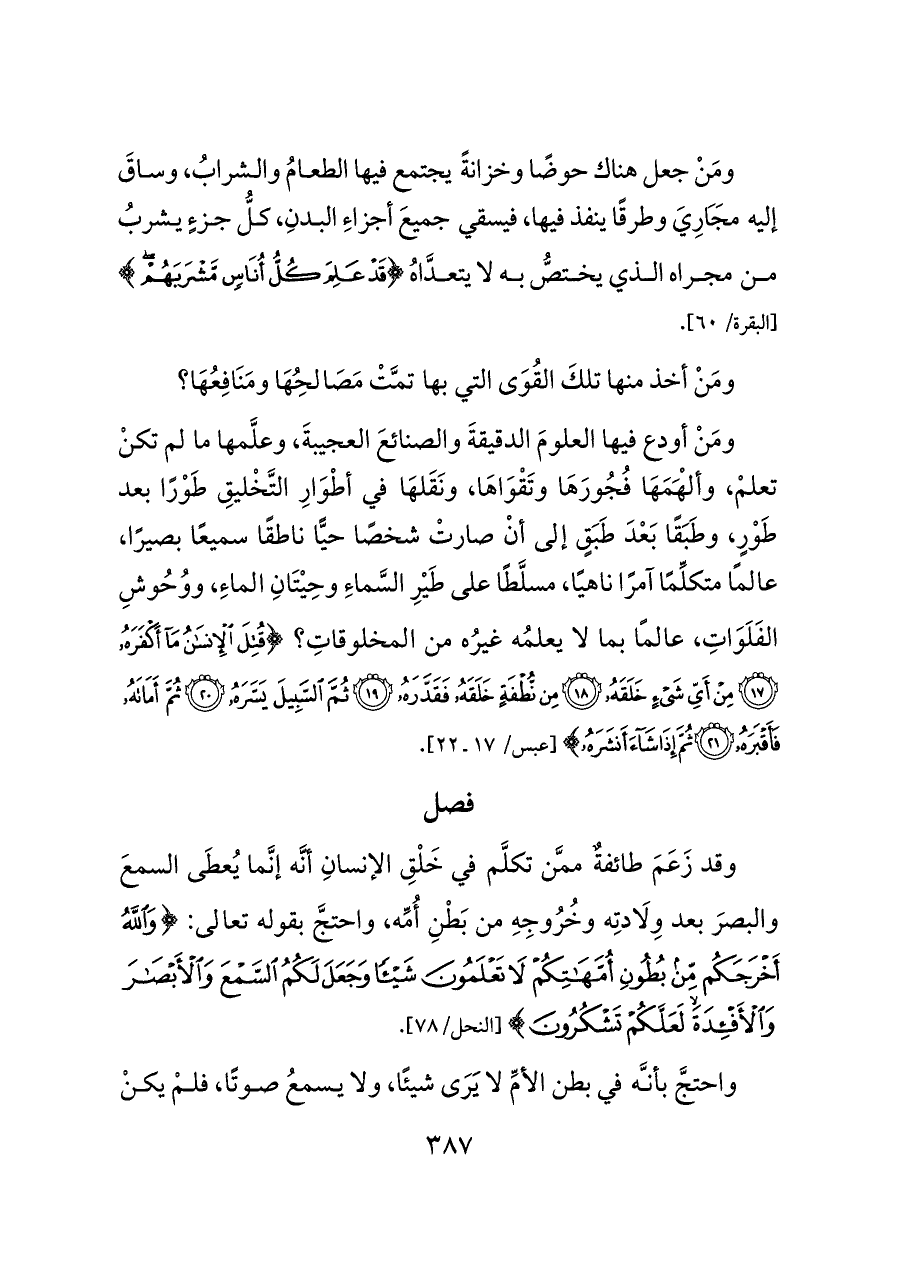 ومَنْ جعل هناك حوضًا وخزانةً يجتمع فيها الطعامُ والشرابُ، وساقَ
إليه مجَارِيَ وطرقًا ينفذ فيها، فيسقي جميعَ أجزاءِ البدنِ، كلُّ جزءٍ يشربُ
من مجراه الذي يختصُّ به لا يتعدَّاهُ ﴿قَدْ عَلِمَ كُلُّ أُنَاسٍ مَّشْرَبَهُمْ ۖ﴾
[البقرة/ ٦٠].
ومَنْ أخذ منها تلكَ القُوَى التي بها تمتَّ مَصَالحُِهَا ومَنَافِعُهَا؟
ومَنْ أودع فيها العلومَ الدقيقةَ والصنائعَ العجيبةَ، وعلَّمها ما لم تكنْ
تعلمْ، وألهْمَهَا فُجُورَهَا وتَقْوَاهَا، ونَقَلهَا في أطْوَارِ التَّخْليقِ طَوْرًا بعد
طَوْرٍ، وطَبَقًا بَعْدَ طَبَقٍ إلى أنْ صارتْ شخصًا حيًّا ناطقًا سميعًا بصيرًا،
عالمًا متكلِّمًا آمرًا ناهيًا، مسلَّطًا على طَيْرِ السَّماءِ وحِيْتَانِ الماءِ، ووُحُوشِ
الفَلَوَاتِ، عالمًا بما لا يعلمُه غيرُه من المخلوقاتِ؟ ﴿قُتِلَ ٱلْإِنسَٰنُ مَآ أَكْفَرَهُۥ
١٧ مِنْ أَيِّ شَىْءٍ خَلَقَهُۥ ١٨ مِن نُّطْفَةٍ خَلَقَهُۥ فَقَدَّرَهُۥ ١٩ ثُمَّ ٱلسَّبِيلَ يَسَّرَهُۥ ٢٠ ثُمَّ أَمَاتَهُۥ
فَأَقْبَرَهُۥ ٢١ ثُمَّ إِذَا شَآءَ أَنشَرَهُۥ﴾ [عبس/ ١٧ ـ ٢٢].
فصل
وقد زَعَمَ طائفةٌ ممَّن تكلَّم في خَلْقِ الإنسانِ أنَّه إنَّما يُعطَى السمعَ
والبصرَ بعد وِلَادتِه وخُرُوجِهِ من بَطْنِ أُمِّه، واحتجَّ بقوله تعالى: ﴿وَٱللَّهُ
أَخْرَجَكُم مِّنۢ بُطُونِ أُمَّهَٰتِكُمْ لَا تَعْلَمُونَ شَيْـًٔا وَجَعَلَ لَكُمُ ٱلسَّمْعَ وَٱلْأَبْصَٰرَ
وَٱلْأَفْـِٔدَةَ ۙ لَعَلَّكُمْ تَشْكُرُونَ﴾ [النحل/ ٧٨].
واحتجَّ بأنَّه في بطن الأمِّ لا يَرَى شيئًا، ولا يسمعُ صوتًا، فلمْ يكنْ
٣٨٧